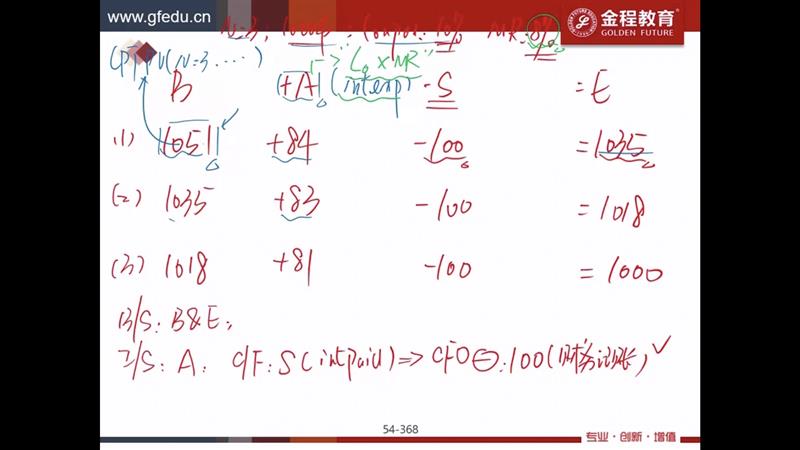 www.gfedu.cn
金程教育
GOLDEN FUTURE
N=3, Coupon 10% MR:
CPT PV(N=3....) > L0 × MR
B +A (int exp) -S = E
(1) 1051 +84 -100 =1035
(2) 1035 +83 -100 =1018
(3) 1018 +81 -100 =1000
B/S: B&E;
I/S: A; CF: S (int paid) => CFO ⊖:100 (财务记账) ✓
54-368
专业·创新·增值